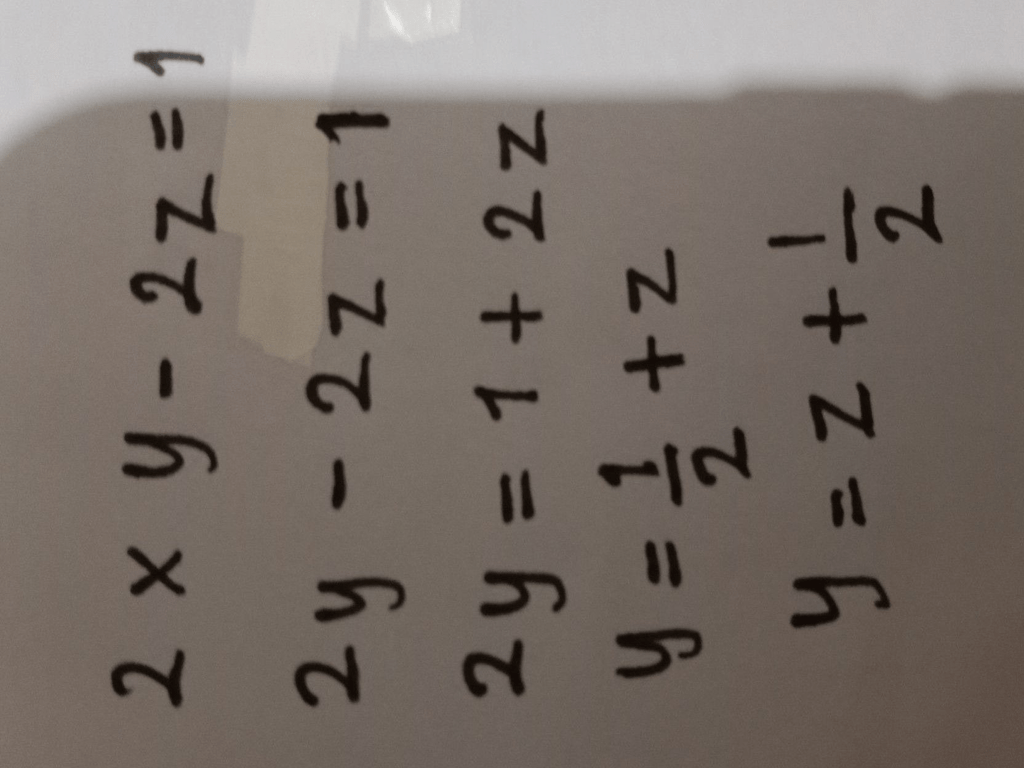 2 × y - 2z = 1
2y - 2z = 1
2y = 1 + 2z
y = \frac{1}{2} + z
y = z + \frac{1}{2}